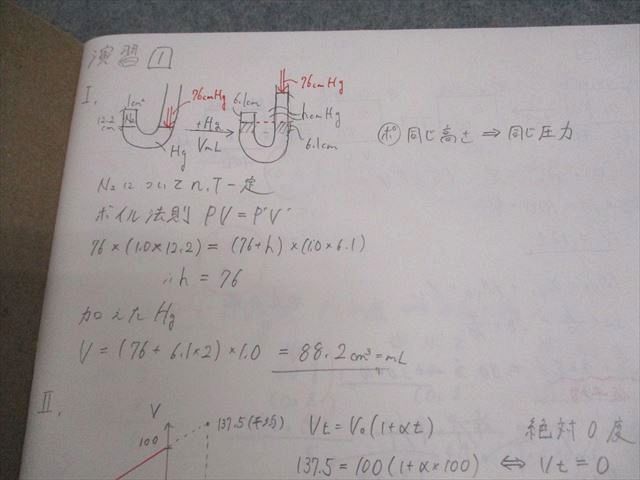 演習 1
I.
1cm²
N₂
12.2cm
76cmHg
Hg
+Hg
VmL
6.1cm
76cmHg
hcmHg
6.1cm
㋭゜ 同じ高さ ⇒ 同じ圧力
N₂について n,T一定
ボイル法則 PV = P'V'
76×(1.0×12.2) = (76+h)×(1.0×6.1)
∴h = 76
加えた Hg
V = (76 + 6.1×2)×1.0 = 88.2cm³=mL
II.
V
137.5(平均)
100
Vt = V₀(1+αt)
絶対0度
137.5 = 100(1+α×100) ⇔ Vt = 0